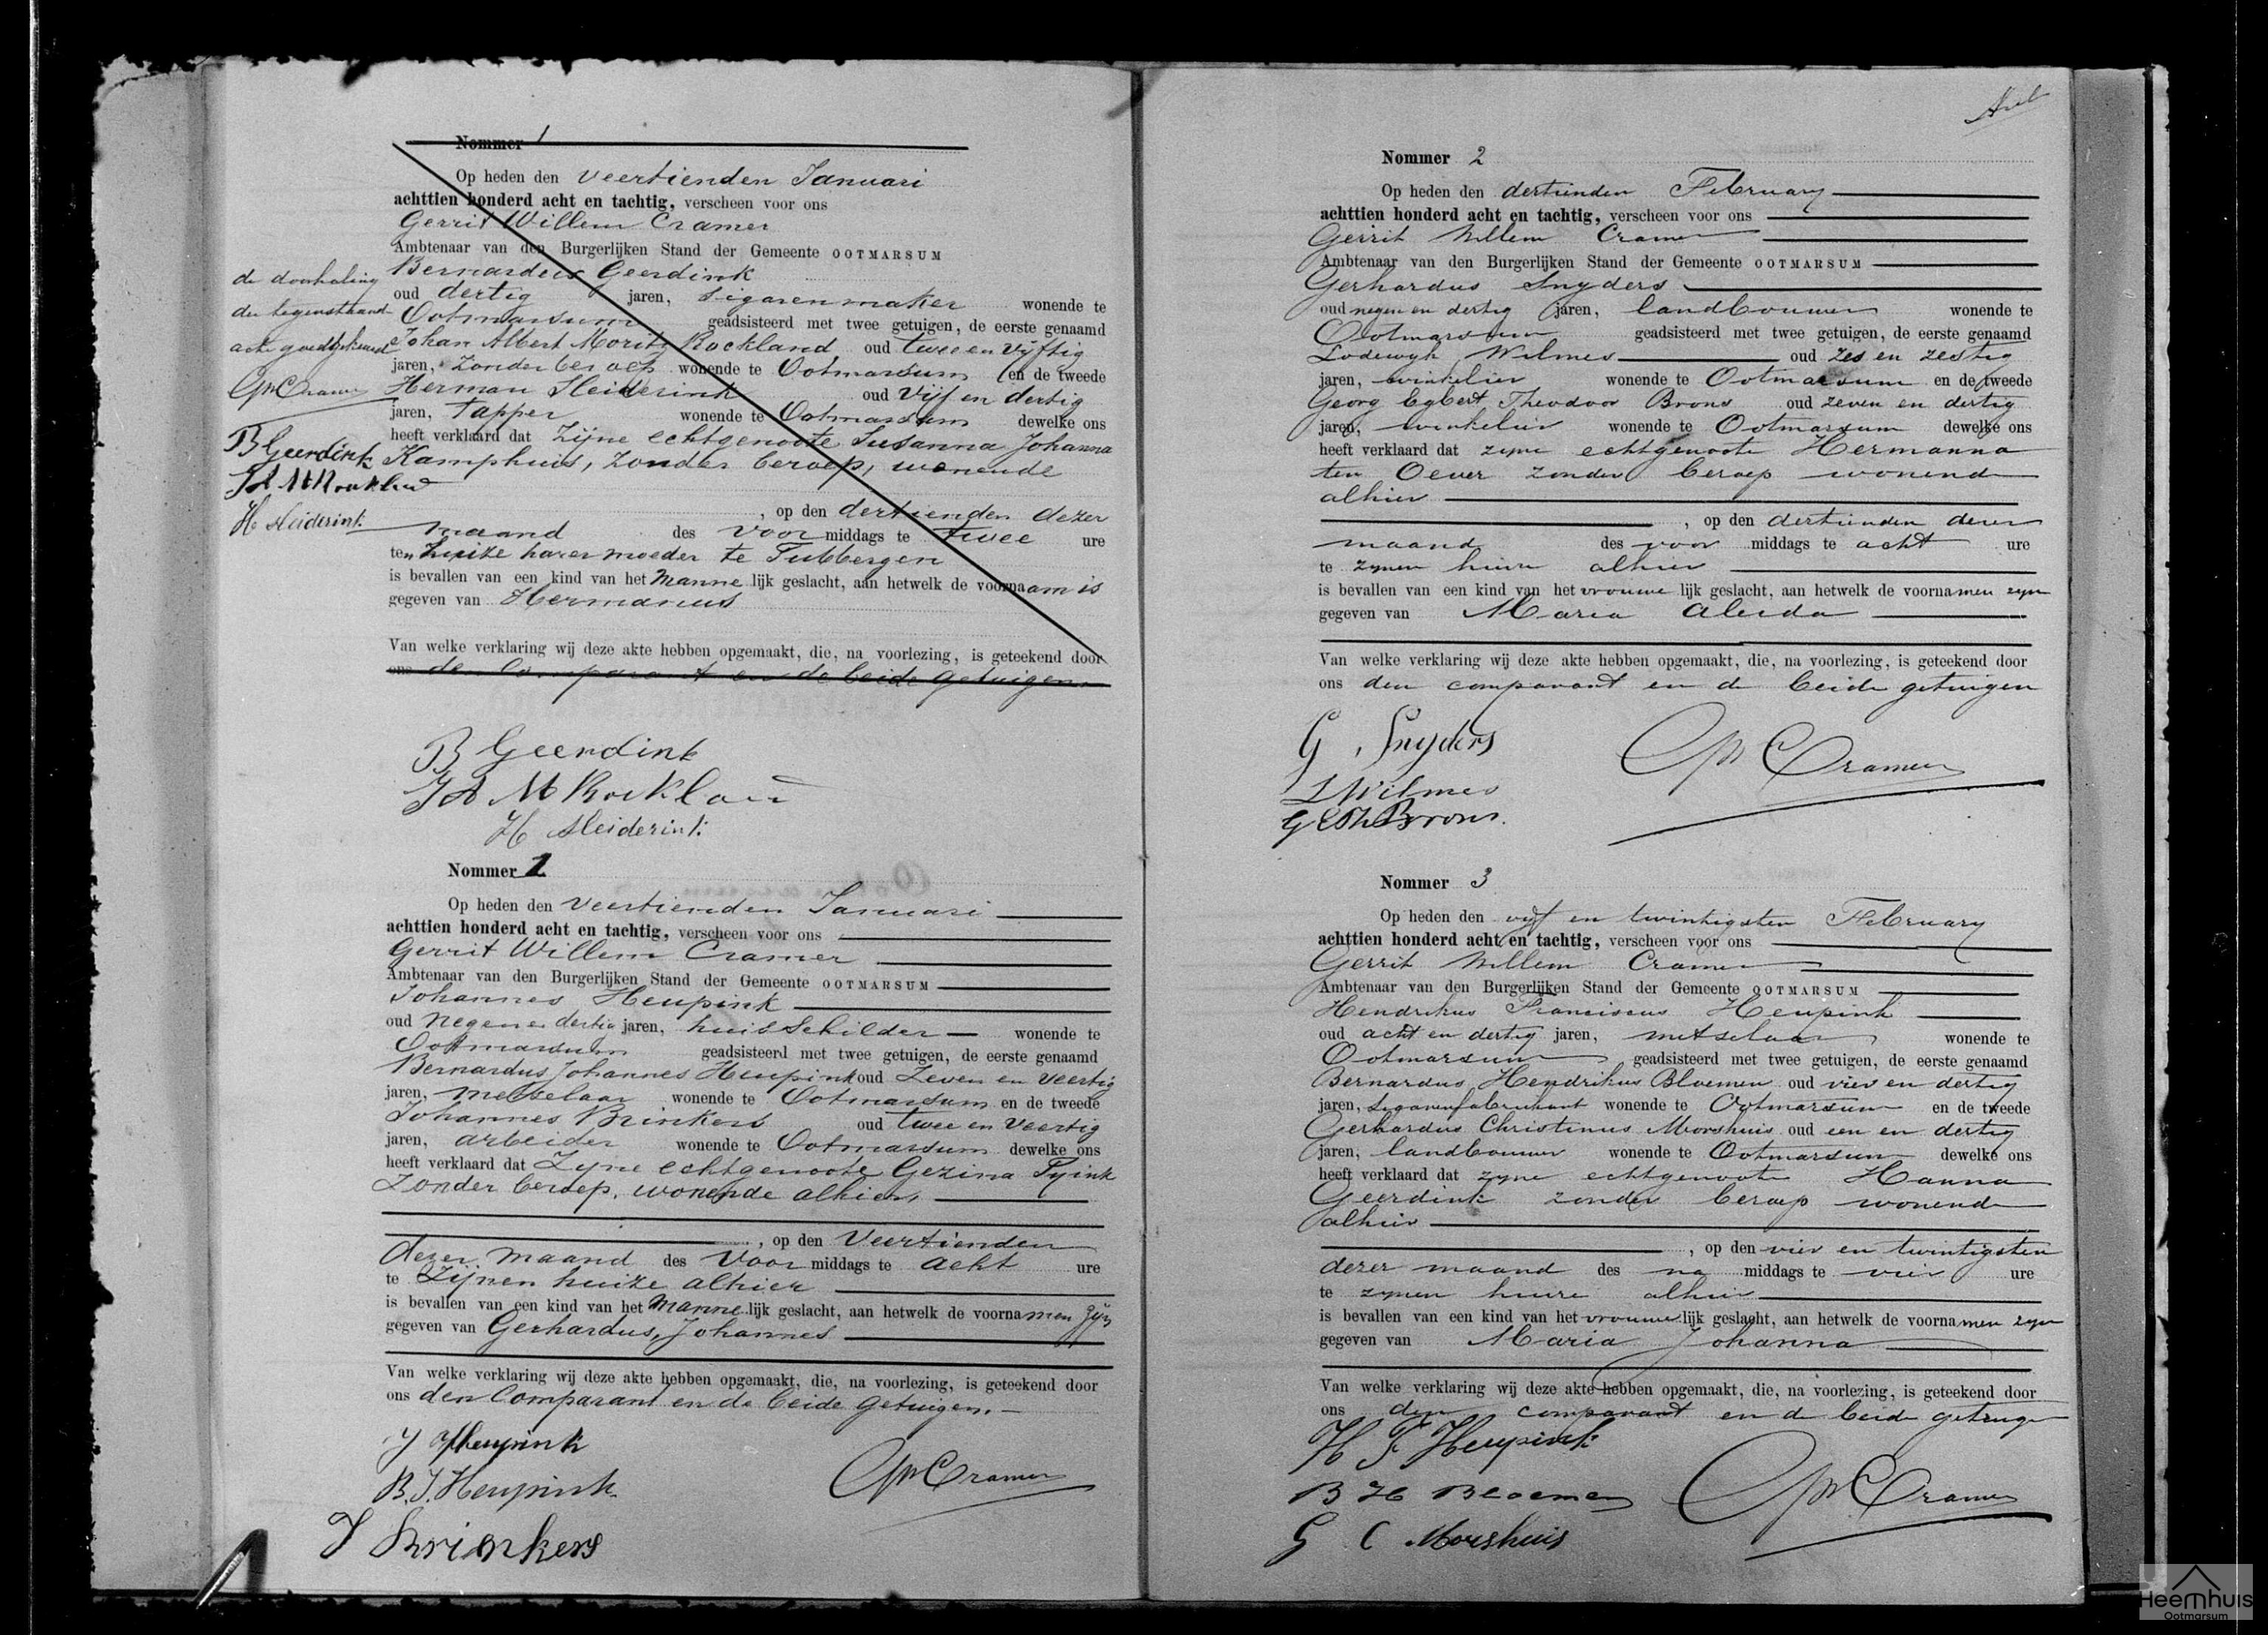 Nommer 1
Op heden den veertienden Januari
achttien honderd acht en tachtig, verscheen voor ons
Gerrit Willem Cramer
Ambtenaar van den Burgerlijken Stand der Gemeente OOTMARSUM
Bernardus Geerdink
oud dertig jaren, sigarenmaker wonende te
Ootmarsum geadsisteerd met twee getuigen, de eerste genaamd
Johan Albert Moritz Rockland oud twee en vijftig
jaren, zonder beroep wonende te Ootmarsum en de tweede
Herman Sleiderink oud Vijf en dertig
jaren, Tapper wonende te Ootmarsum dewelke ons
heeft verklaard dat zijne echtgenoote Susanna Johanna
Kamphuis, zonder beroep, wonende
, op den dertienden dezer
maand des voor middags te twee ure
ten huize harer moeder te Tubbergen
is bevallen van een kind van het manne lijk geslacht, aan hetwelk de voornaam is
gegeven van Hermanus
Van welke verklaring wij deze akte hebben opgemaakt, die, na voorlezing, is geteekend door
ons den Comparant en de beide getuigen
de doorhaling
der tegenstaande
acte goedgekeurd
GW Cramer
B Geerdink
J A M Rockland
H Sleiderink
B Geerdink
J A M Rockland
H Sleiderink
Nommer 1
Op heden den Veertienden Januari
achttien honderd acht en tachtig, verscheen voor ons
Gerrit Willem Cramer
Ambtenaar van den Burgerlijken Stand der Gemeente OOTMARSUM
Johannes Heupink
oud negen en dertig jaren, huisschilder wonende te
Ootmarsum geadsisteerd met twee getuigen, de eerste genaamd
Bernardus Johannes Heupink oud Zeven en Veertig
jaren, metselaar wonende te Ootmarsum en de tweede
Johannes Brinkers oud twee en Veertig
jaren, arbeider wonende te Ootmarsum dewelke ons
heeft verklaard dat Zijne echtgenoote Gezina Tyink
Zonder beroep, wonende alhier,
, op den Veertienden
dezer maand des Voor middags te acht ure
te Zijnen huize alhier
is bevallen van een kind van het manne lijk geslacht, aan hetwelk de voornamen zijn
gegeven van Gerhardus, Johannes
Van welke verklaring wij deze akte hebben opgemaakt, die, na voorlezing, is geteekend door
ons den Comparant en de beide Getuigen.
J Heupink
B. J. Heupink
GW Cramer
J Brinkers
Nommer 2
Op heden den dertienden February
achttien honderd acht en tachtig, verscheen voor ons
Gerrit Willem Cramer
Ambtenaar van den Burgerlijken Stand der Gemeente OOTMARSUM
Gerhardus Snyders
oud negen en dertig jaren, landbouwer wonende te
Ootmarsum geadsisteerd met twee getuigen, de eerste genaamd
Lodewyk Wilmes oud zes en zestig
jaren, winkelier wonende te Ootmarsum en de tweede
Georg Egbert Theodoor Brons oud zeven en dertig
jaren, winkelier wonende te Ootmarsum dewelke ons
heeft verklaard dat zyne echtgenoote Hermanna
ten Oever zonder beroep wonende
alhier
, op den dertienden dezer
maand des voor middags te acht ure
te zynen huize alhier
is bevallen van een kind van het vrouwe lijk geslacht, aan hetwelk de voornamen zyn
gegeven van Maria Aleida
Van welke verklaring wij deze akte hebben opgemaakt, die, na voorlezing, is geteekend door
ons den comparant en de beide getuigen
G Snyders
GW Cramer
L Wilmes
G E Th Brons.
Nommer 3
Op heden den vyf en twintigsten February
achttien honderd acht en tachtig, verscheen voor ons
Gerrit Willem Cramer
Ambtenaar van den Burgerlijken Stand der Gemeente OOTMARSUM
Hendrikus Franciscus Heupink
oud acht en dertig jaren, metselaar wonende te
Ootmarsum geadsisteerd met twee getuigen, de eerste genaamd
Bernardus Hendrikus Bloemen oud vier en dertig
jaren, sigarenfabrikant wonende te Ootmarsum en de tweede
Gerhardus Christinus Morshuis oud een en dertig
jaren, landbouwer wonende te Ootmarsum dewelke ons
heeft verklaard dat zyne echtgenoote Hanna
Geerdink zonder beroep wonende
alhier
, op den vier en twintigsten
dezer maand des na middags te vier ure
te zynen huize alhier
is bevallen van een kind van het vrouwe lijk geslacht, aan hetwelk de voornamen zyn
gegeven van Maria Johanna
Van welke verklaring wij deze akte hebben opgemaakt, die, na voorlezing, is geteekend door
ons den comparant en de beide getuigen
H F Heupink
B H Bloemen
GW Cramer
G C Morshuis
Heemhuis
Ootmarsum